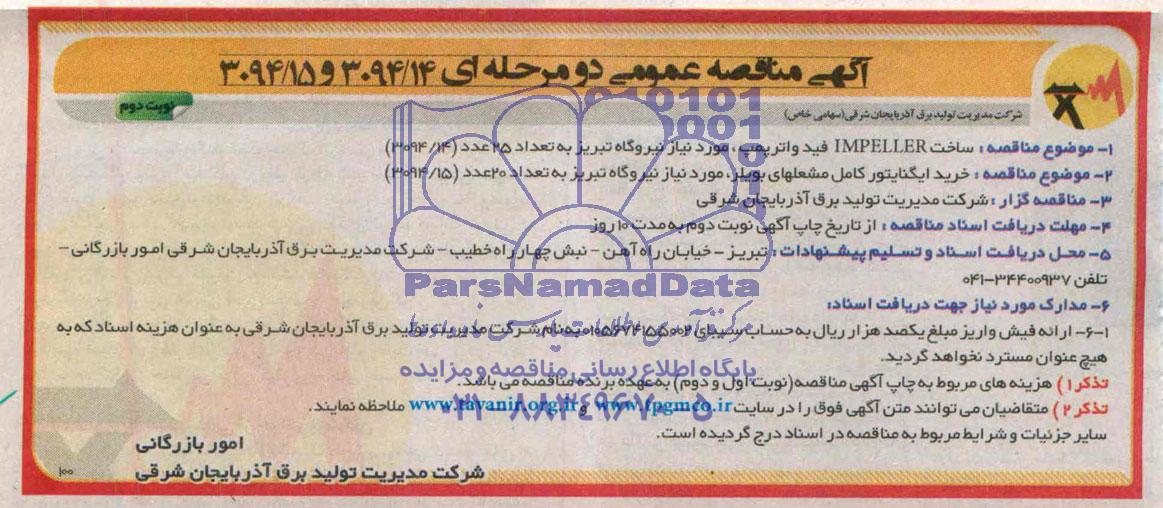 آگهی مناقصه عمومی دو مرحله ای ۳۰۹۴/۱۴ و ۳۰۹۴/۱۵
نوبت دوم
شرکت مدیریت تولید برق آذربایجان شرقی (سهامی خاص)
۱- موضوع مناقصه : ساخت IMPELLER فید واتر پمپ ، مورد نیاز نیروگاه تبریز به تعداد ۲۵ عدد (۳۰۹۴/۱۴)
۲- موضوع مناقصه : خرید ایگنایتور کامل مشعلهای بویلر، مورد نیاز نیروگاه تبریز به تعداد ۲۰ عدد (۳۰۹۴/۱۵)
۳- مناقصه گزار : شرکت مدیریت تولید برق آذربایجان شرقی
۴- مهلت دریافت اسناد مناقصه : از تاریخ چاپ آگهی نوبت دوم به مدت ۱۰ روز
۵- محل دریافت اسناد و تسلیم پیشنهادات : تبریز - خیابان راه آهن - نبش چهار راه خطیب - شرکت مدیریت برق آذربایجان شرقی امور بازرگانی -
تلفن ۳۴۴۰۰۹۳۷-۰۴۱
۶- مدارک مورد نیاز جهت دریافت اسناد:
۶-۱- ارائه فیش واریز مبلغ یکصد هزار ریال به حساب سیبای به نام شرکت مدیریت تولید برق آذربایجان شرقی به عنوان هزینه اسناد که به
هیچ عنوان مسترد نخواهد گردید.
تذکر ۱) هزینه های مربوط به چاپ آگهی مناقصه (نوبت اول و دوم) به عهده برنده مناقصه می باشد.
تذکر ۲) متقاضیان می توانند متن آگهی فوق را در سایت www.tpgmco.ir و www.tavanir.org.ir ملاحظه نمایند.
سایر جزئیات و شرایط مربوط به مناقصه در اسناد درج گردیده است.
امور بازرگانی
شرکت مدیریت تولید برق آذربایجان شرقی
۱۰۰
ParsNamadData
پایگاه اطلاع رسانی مناقصه و مزایده
۰۲۱-۸۸۳۴۹۶۷۰-۵